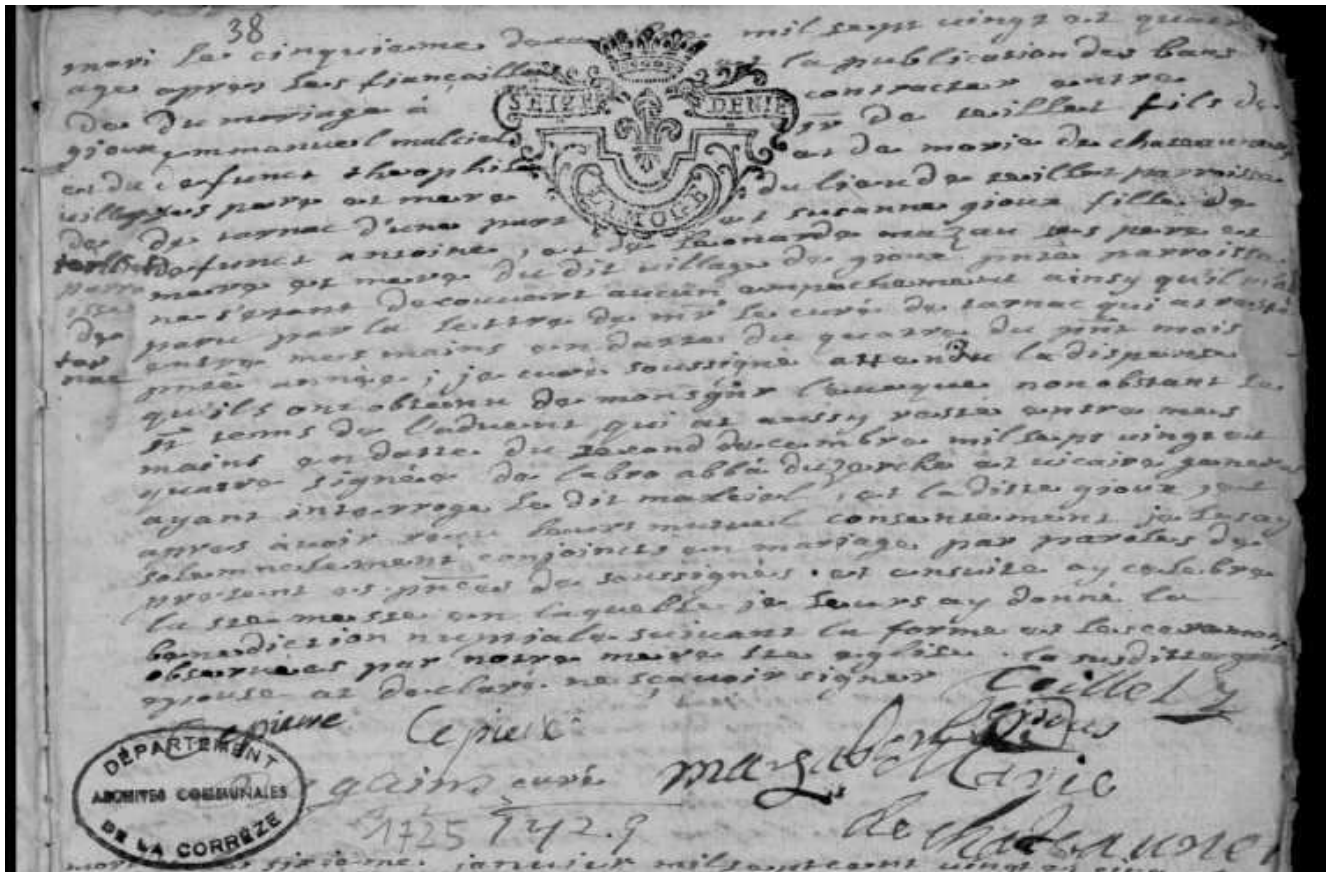 38
mari le cinquieme mil sept vingt et quatre
age apres les fiançailles et la publication des bans
de du mariage a contracter entre
gioux emmanuel maltiel sr de teillet fils de
et du defunct theophile et de marie de chateauneuf
village ses pere et mere du lieu de teillet parroisse
de de tarnac d'une part et susanne gioux fille de
defunct antoine, et de leonarde mazau ses pere et
parro mere et mere du dit village de gioux pnte parroisse
isse ne s'etant decouvert aucun empechement ainsy qu'il m'a
de paru par la lettre de mr le curé de tarnac qui at resté
tar entre mes mains en datte du quatre du pnt mois
nac pnte année, je curé soussigné attendu la dispense
qu'ils ont obtenu de monsgnr l'eveque nonobstant le
st tems de l'advent, qui at aussy resté entre mes
mains en datte du second decembre mil sept vingt et
quatre signée de labro abbé duzerche et vicaire general
ayant interrogé le dit maltiel, et laditte gioux, et
apres avoir receu leurs mutuel consentement je les ay
solemnelement conjoincts en mariage par paroles de
present es pnces de soussignés. et ensuite ay celebré
la ste messe en laquelle je leurs ay donné la
benediction nuptiale suivant la forme et les ceremonies
observées par notre mere ste eglise. la susditte
epouse at declaré ne sçavoir signer Teillet
Lepieue Marie
curé
1725 1742.9 de chateauneuf
sixieme janvier mil sept cent vingt et cinq
SEIZE DENIE
LIMOGE
DÉPARTEMENT
ARCHIVES COMMUNALES
DE LA CORRÈZE